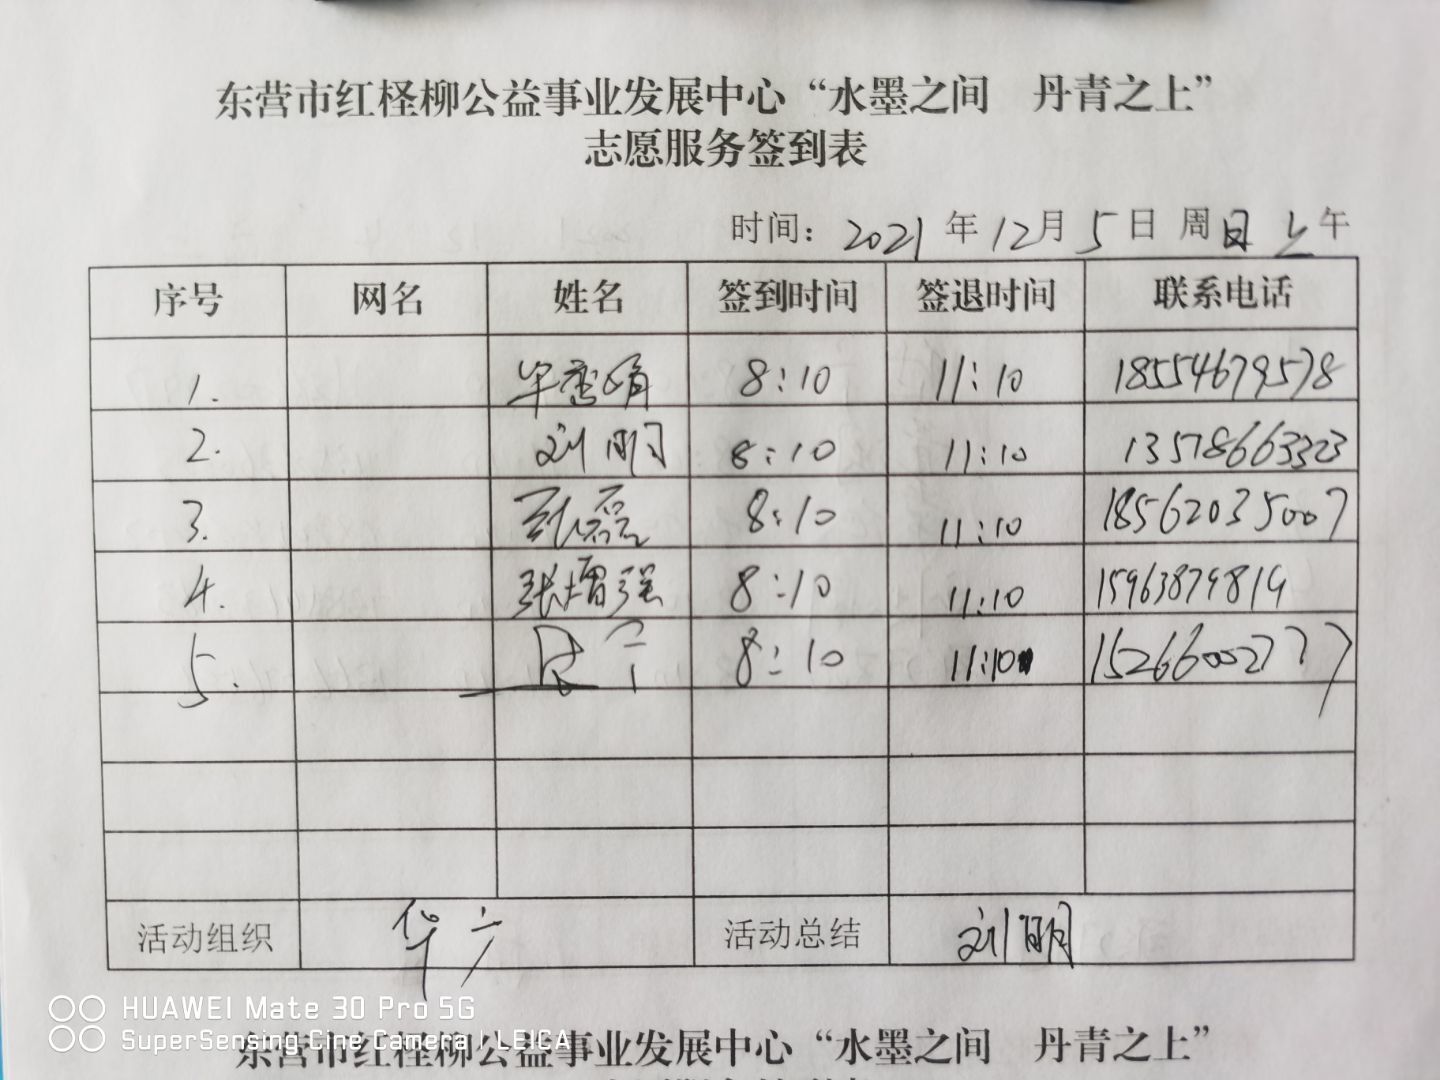 东营市红柽柳公益事业发展中心“水墨之间 丹青之上”
志愿服务签到表
时间：2021年12月5日 周日上午
序号 网名 姓名 签到时间 签退时间 联系电话
1. 8:10 11:10 18554679578
2. 刘明 8:10 11:10 13578663323
3. 张磊 8:10 11:10 18562035007
4. 张增强 8:10 11:10 15963879819
5. 8:10 11:10 15266002777
活动组织 活动总结 刘明
HUAWEI Mate 30 Pro 5G
SuperSensing Cine Camera | LEICA
东营市红柽柳公益事业发展中心“水墨之间 丹青之上”